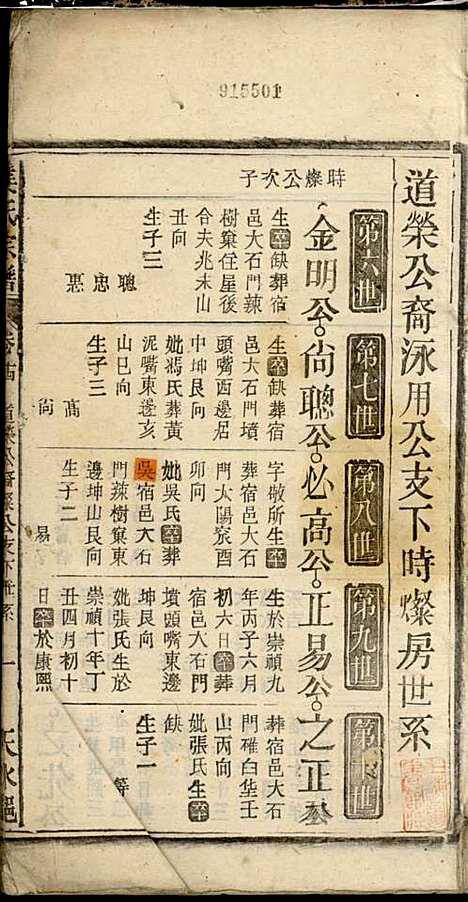 915501
道榮公裔泳用公支下時燦房世系
第六世
第七世
第八世
第九世
金明公
尙聰公
必高公
正易公
之正公
時燦公次子
生卒缺葬宿
邑大石門辣
樹窠住屋後
合夫兆未山
丑向
生子三
聰
忠
惠
生卒缺葬宿
邑大石門墳
頭嘴西邊居
中坤艮向
妣馮氏葬黃
泥嘴東邊亥
山巳向
生子三
高
尙
字敬所生卒
葬宿邑大石
門太陽寮酉
卯向
妣吳氏卒葬
吳宿邑大石
門辣樹窠東
邊坤山艮向
生子二
易
生於崇禎九
年丙子六月
初六日卒葬
宿邑大石門
墳頭嘴東邊
坤艮向
妣張氏生於
崇禎十年丁
丑四月初十
日卒於康熙
葬宿邑大石
門碓臼垡壬
山丙向
妣張氏生卒
缺
生子一
等